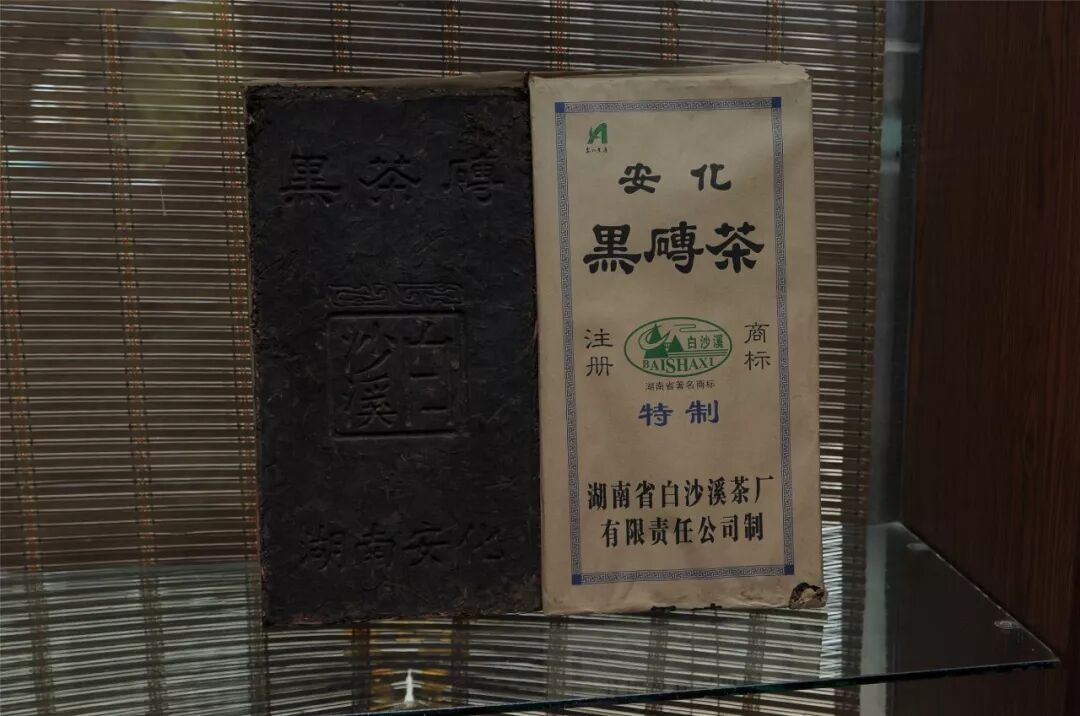 黒茶磚
白沙溪
湖南安化
安化
黒磚茶
注册
商标
白沙溪
BAISHAXI
湖南省著名商标
特制
湖南省白沙溪茶厂
有限责任公司制